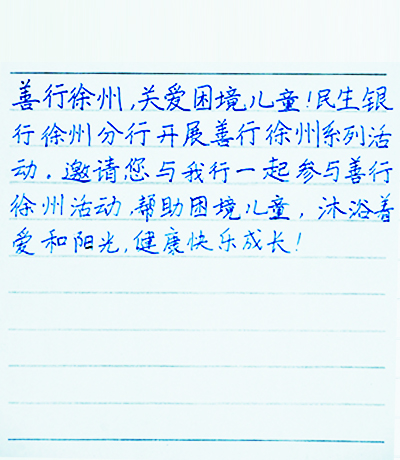 善行徐州,关爱困境儿童!民生银
行徐州分行开展善行徐州系列活
动.邀请您与我行一起参与善行
徐州活动,帮助困境儿童,沐浴着
爱和阳光,健康快乐成长!